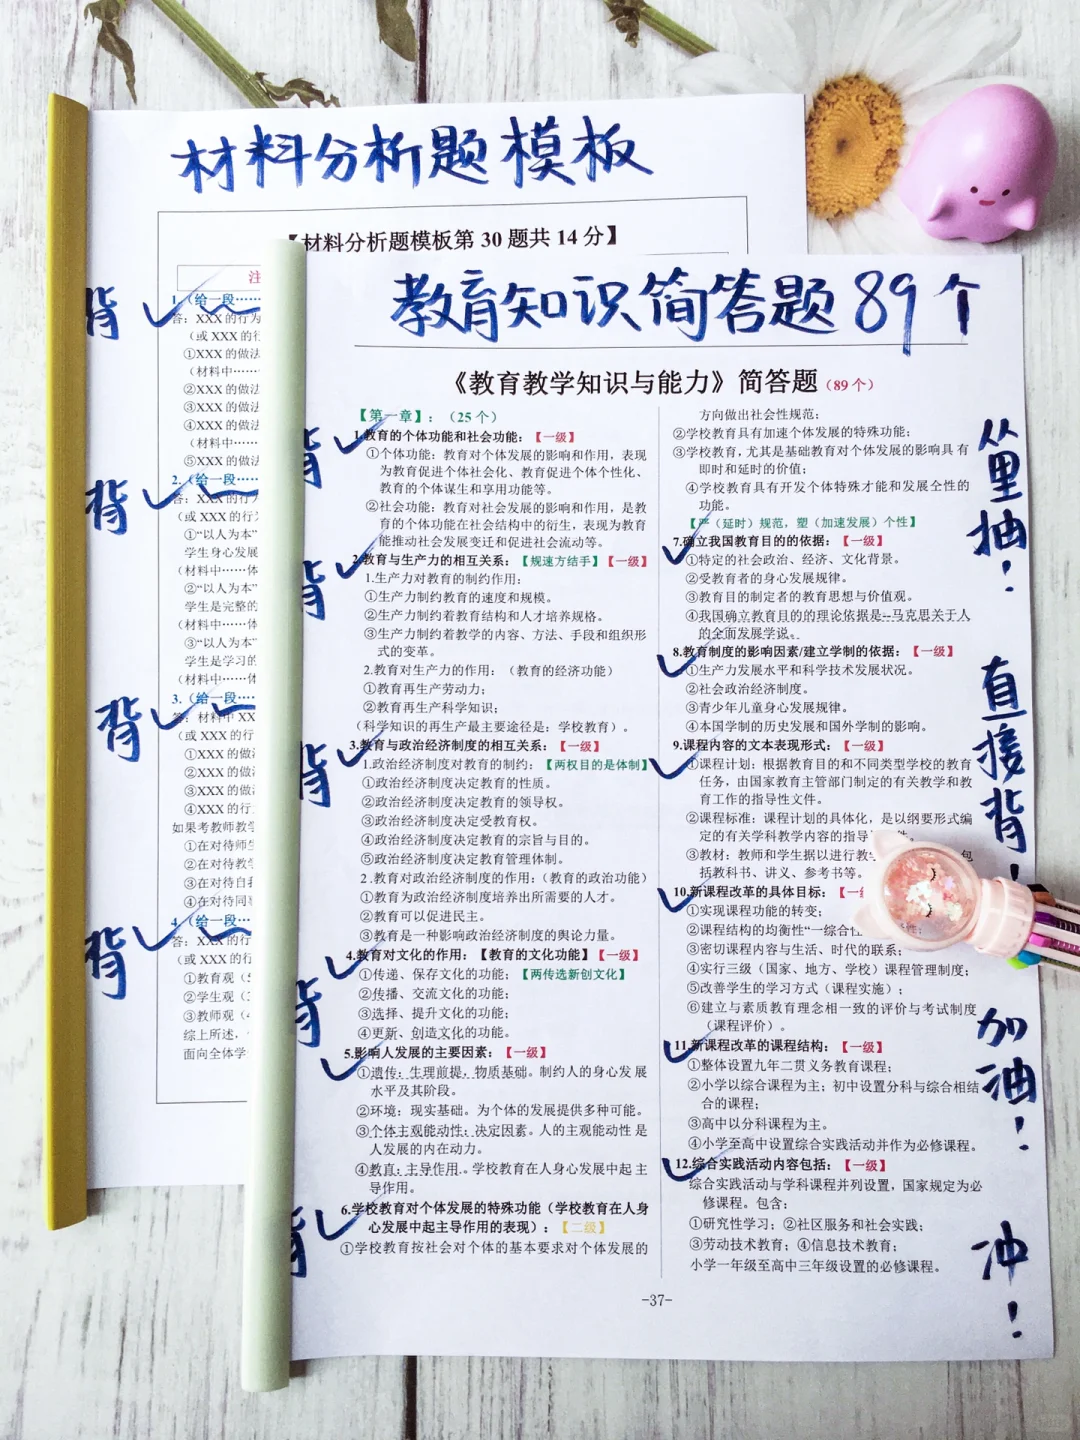 材料分析题模板
【材料分析题模板第 30 题共 14 分】
注
1.（给一段……
答：XXX 的行为
（或 XXX 的行
①XXX 的做法
（材料中……
②XXX 的做法
③XXX 的做法
④XXX 的做法
（材料中……
⑤XXX 的做法
2.（给一段……
答：XXX 的行为
（或 XXX 的行
①“以人为本”
学生身心发展
（材料中……体
②“以人为本”
学生是完整的
（材料中……体
③“以人为本”
学生是学习的
（材料中……体
3.（给一段……
答：材料中 XX
（或 XXX 的行
①XXX 的做
②XXX 的做
③XXX 的做
④XXX 的行
如果考教师教学
①在对待师生
②在对待教学
③在对待自我
④在对待同事
4.（给一段……
答：XXX 的行
（或 XXX 的行
①教育观（5
②学生观（
③教师观（4
综上所述，
面向全体学
背
背
背
背
教育知识简答题89个
《教育教学知识与能力》简答题（89 个）
【第一章】：（25 个）
1.教育的个体功能和社会功能：【一级】
①个体功能：教育对个体发展的影响和作用，表现
为教育促进个体社会化、教育促进个体个性化、
教育的个体谋生和享用功能等。
②社会功能：教育对社会发展的影响和作用，是教
育的个体功能在社会结构中的衍生，表现为教育
能推动社会发展变迁和促进社会流动等。
2.教育与生产力的相互关系：【规速方结手】【一级】
1.生产力对教育的制约作用：
①生产力制约教育的速度和规模。
②生产力制约着教育结构和人才培养规格。
③生产力制约着教学的内容、方法、手段和组织形
式的变革。
2.教育对生产力的作用：（教育的经济功能）
①教育再生产劳动力；
②教育再生产科学知识；
（科学知识的再生产最主要途径是：学校教育）。
3.教育与政治经济制度的相互关系：【一级】
1.政治经济制度对教育的制约：【两权目的是体制】
①政治经济制度决定教育的性质。
②政治经济制度决定教育的领导权。
③政治经济制度决定受教育权。
④政治经济制度决定教育的宗旨与目的。
⑤政治经济制度决定教育管理体制。
2.教育对政治经济制度的作用：（教育的政治功能）
①教育为政治经济制度培养出所需要的人才。
②教育可以促进民主。
③教育是一种影响政治经济制度的舆论力量。
4.教育对文化的作用：【教育的文化功能】【一级】
①传递、保存文化的功能；【两传选新创文化】
②传播、交流文化的功能；
③选择、提升文化的功能；
④更新、创造文化的功能。
5.影响人发展的主要因素：【一级】
①遗传：生理前提，物质基础。制约人的身心发展
水平及其阶段。
②环境：现实基础。为个体的发展提供多种可能。
③个体主观能动性：决定因素。人的主观能动性是
人发展的内在动力。
④教育：主导作用。学校教育在人身心发展中起主
导作用。
6.学校教育对个体发展的特殊功能（学校教育在人身
心发展中起主导作用的表现）：【二级】
①学校教育按社会对个体的基本要求对个体发展的
方向做出社会性规范；
②学校教育具有加速个体发展的特殊功能；
③学校教育，尤其是基础教育对个体发展的影响具有
即时和延时的价值；
④学校教育具有开发个体特殊才能和发展个性的
功能。
【严（延时）规范，塑（加速发展）个性】
7.确立我国教育目的的依据：【一级】
①特定的社会政治、经济、文化背景。
②受教育者的身心发展规律。
③教育目的制定者的教育思想与价值观。
④我国确立教育目的的理论依据是--马克思关于人
的全面发展学说。
8.教育制度的影响因素/建立学制的依据：【一级】
①生产力发展水平和科学技术发展状况。
②社会政治经济制度。
③青少年儿童身心发展规律。
④本国学制的历史发展和国外学制的影响。
9.课程内容的文本表现形式：【一级】
①课程计划：根据教育目的和不同类型学校的教育
任务，由国家教育主管部门制定的有关教学和教
育工作的指导性文件。
②课程标准：课程计划的具体化，是以纲要形式编
定的有关学科教学内容的指导
③教材：教师和学生据以进行教 包
括教科书、讲义、参考书等。
10.新课程改革的具体目标：【一级
①实现课程功能的转变；
②课程结构的均衡性“一综合
③密切课程内容与生活、时代的联系；
④实行三级（国家、地方、学校）课程管理制度；
⑤改善学生的学习方式（课程实施）；
⑥建立与素质教育理念相一致的评价与考试制度
（课程评价）。
11.新课程改革的课程结构：【一级】
①整体设置九年二贯义务教育课程；
②小学以综合课程为主；初中设置分科与综合相结
合的课程；
③高中以分科课程为主。
④小学至高中设置综合实践活动并作为必修课程。
12.综合实践活动内容包括：【一级】
综合实践活动与学科课程并列设置，国家规定为必
修课程。包含：
①研究性学习；②社区服务和社会实践；
③劳动技术教育；④信息技术教育；
小学一年级至高中三年级设置的必修课程。
-37-
背
背
背
背
背
从里抽！
直接背！
加油！
冲！